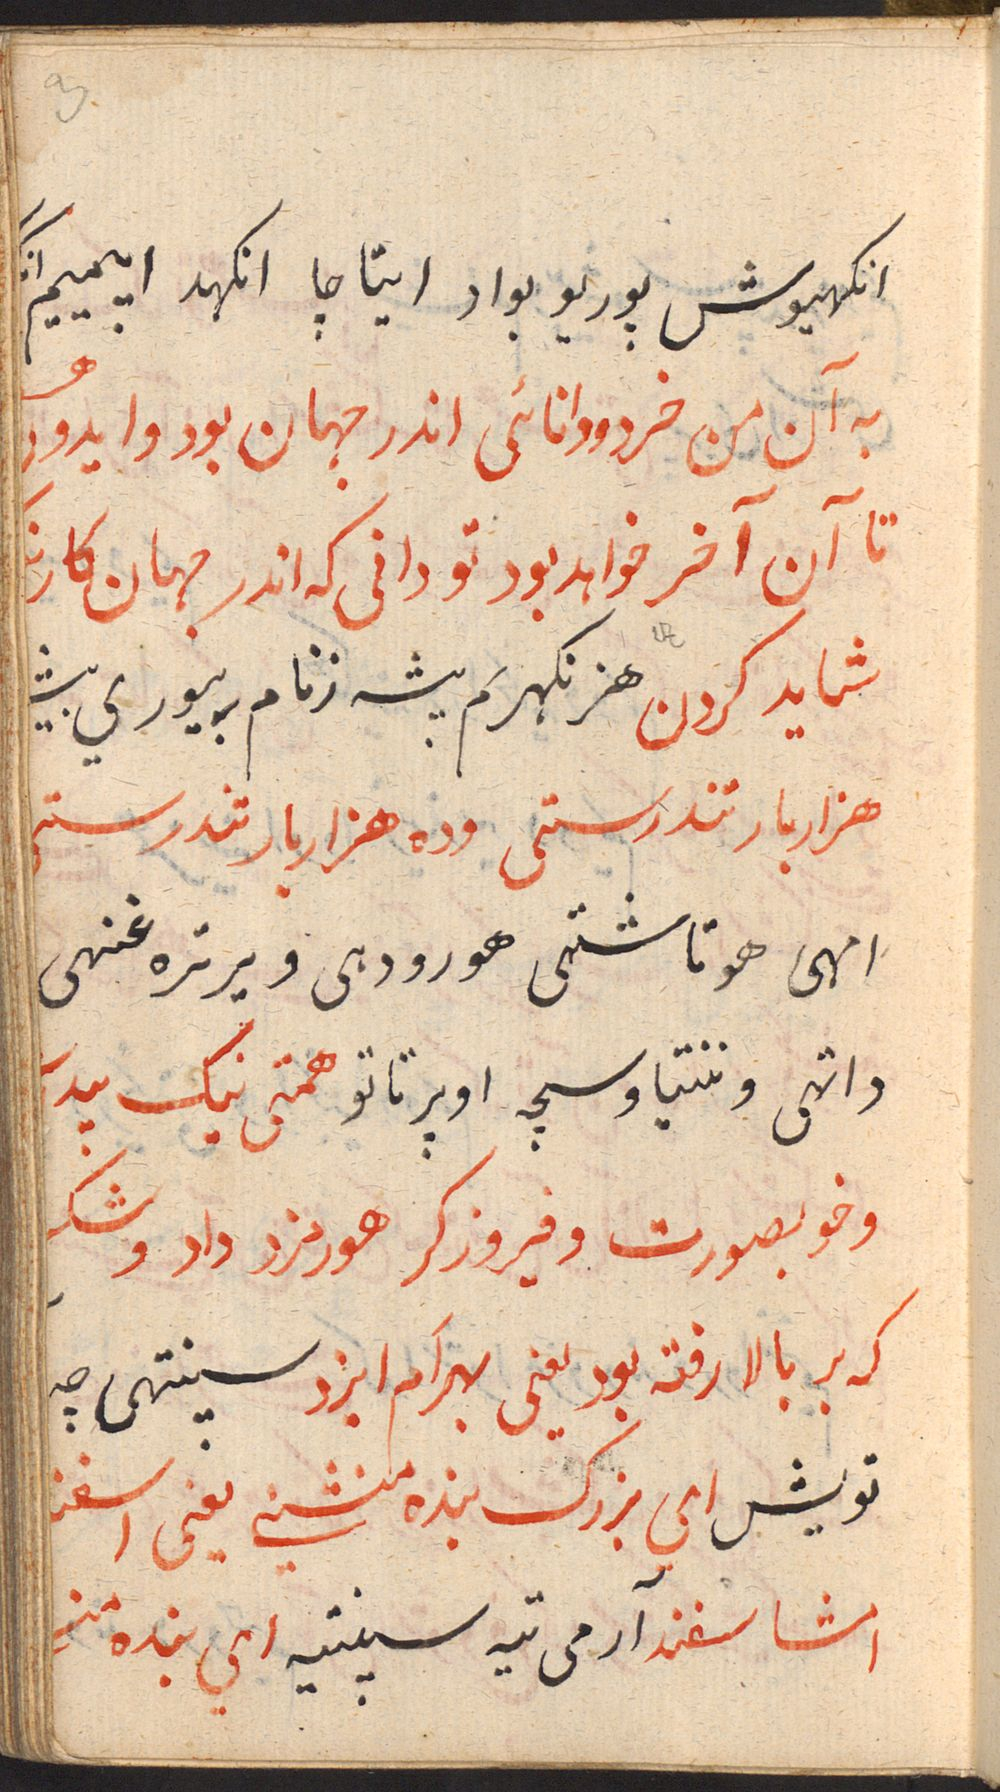 انکهیوش پوریو بواد ایتاچا انکهد اپیمیم
به آن من خرد و دانائی اندر جهان بود و ایدون
تا آن آخر خواهد بود تو دانی که اندر جهان کار
شاید کردن هزنکهرم پیشه زنام بیوری
هزار بار تندرستی وده هزار بار تندرستی
امهی هوتاشتهی هورودهی ویرتره غنهی
داتهی وننتیاوسچه اوپرتاتو همتی نیک
وخوبصورت وفیروزکر هورمزد داد و
که بر بالا رفته بود یعنی بهرام ایزد سپنتهی چه
تویش ای بزرک بنده منشنی یعنی
امشاسفند آرمی تیه سپنتیه ای بنده